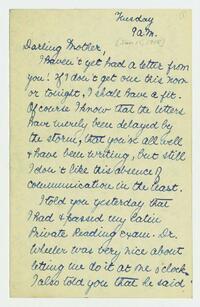 Tuesday
9 a.m.
Darling Mother,
I haven't yet had a letter from
you! If I don't get one this noon
or tonight, I shall have a fit.
Of course I know that the letters
have merely been delayed by
the storm, that you're all well
& have been writing, but still
I don't like this absence of
communication in the least.
I told you yesterday that
I had & passed my Latin
Private Reading exam. Dr.
Wheeler was very nice about
letting me do it at one o'clock.
I also told you that he said